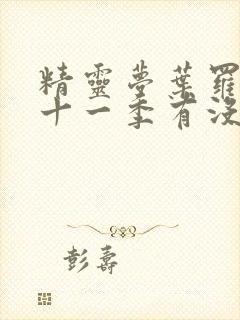 精靈夢葉羅
十一季有沒
彭壽